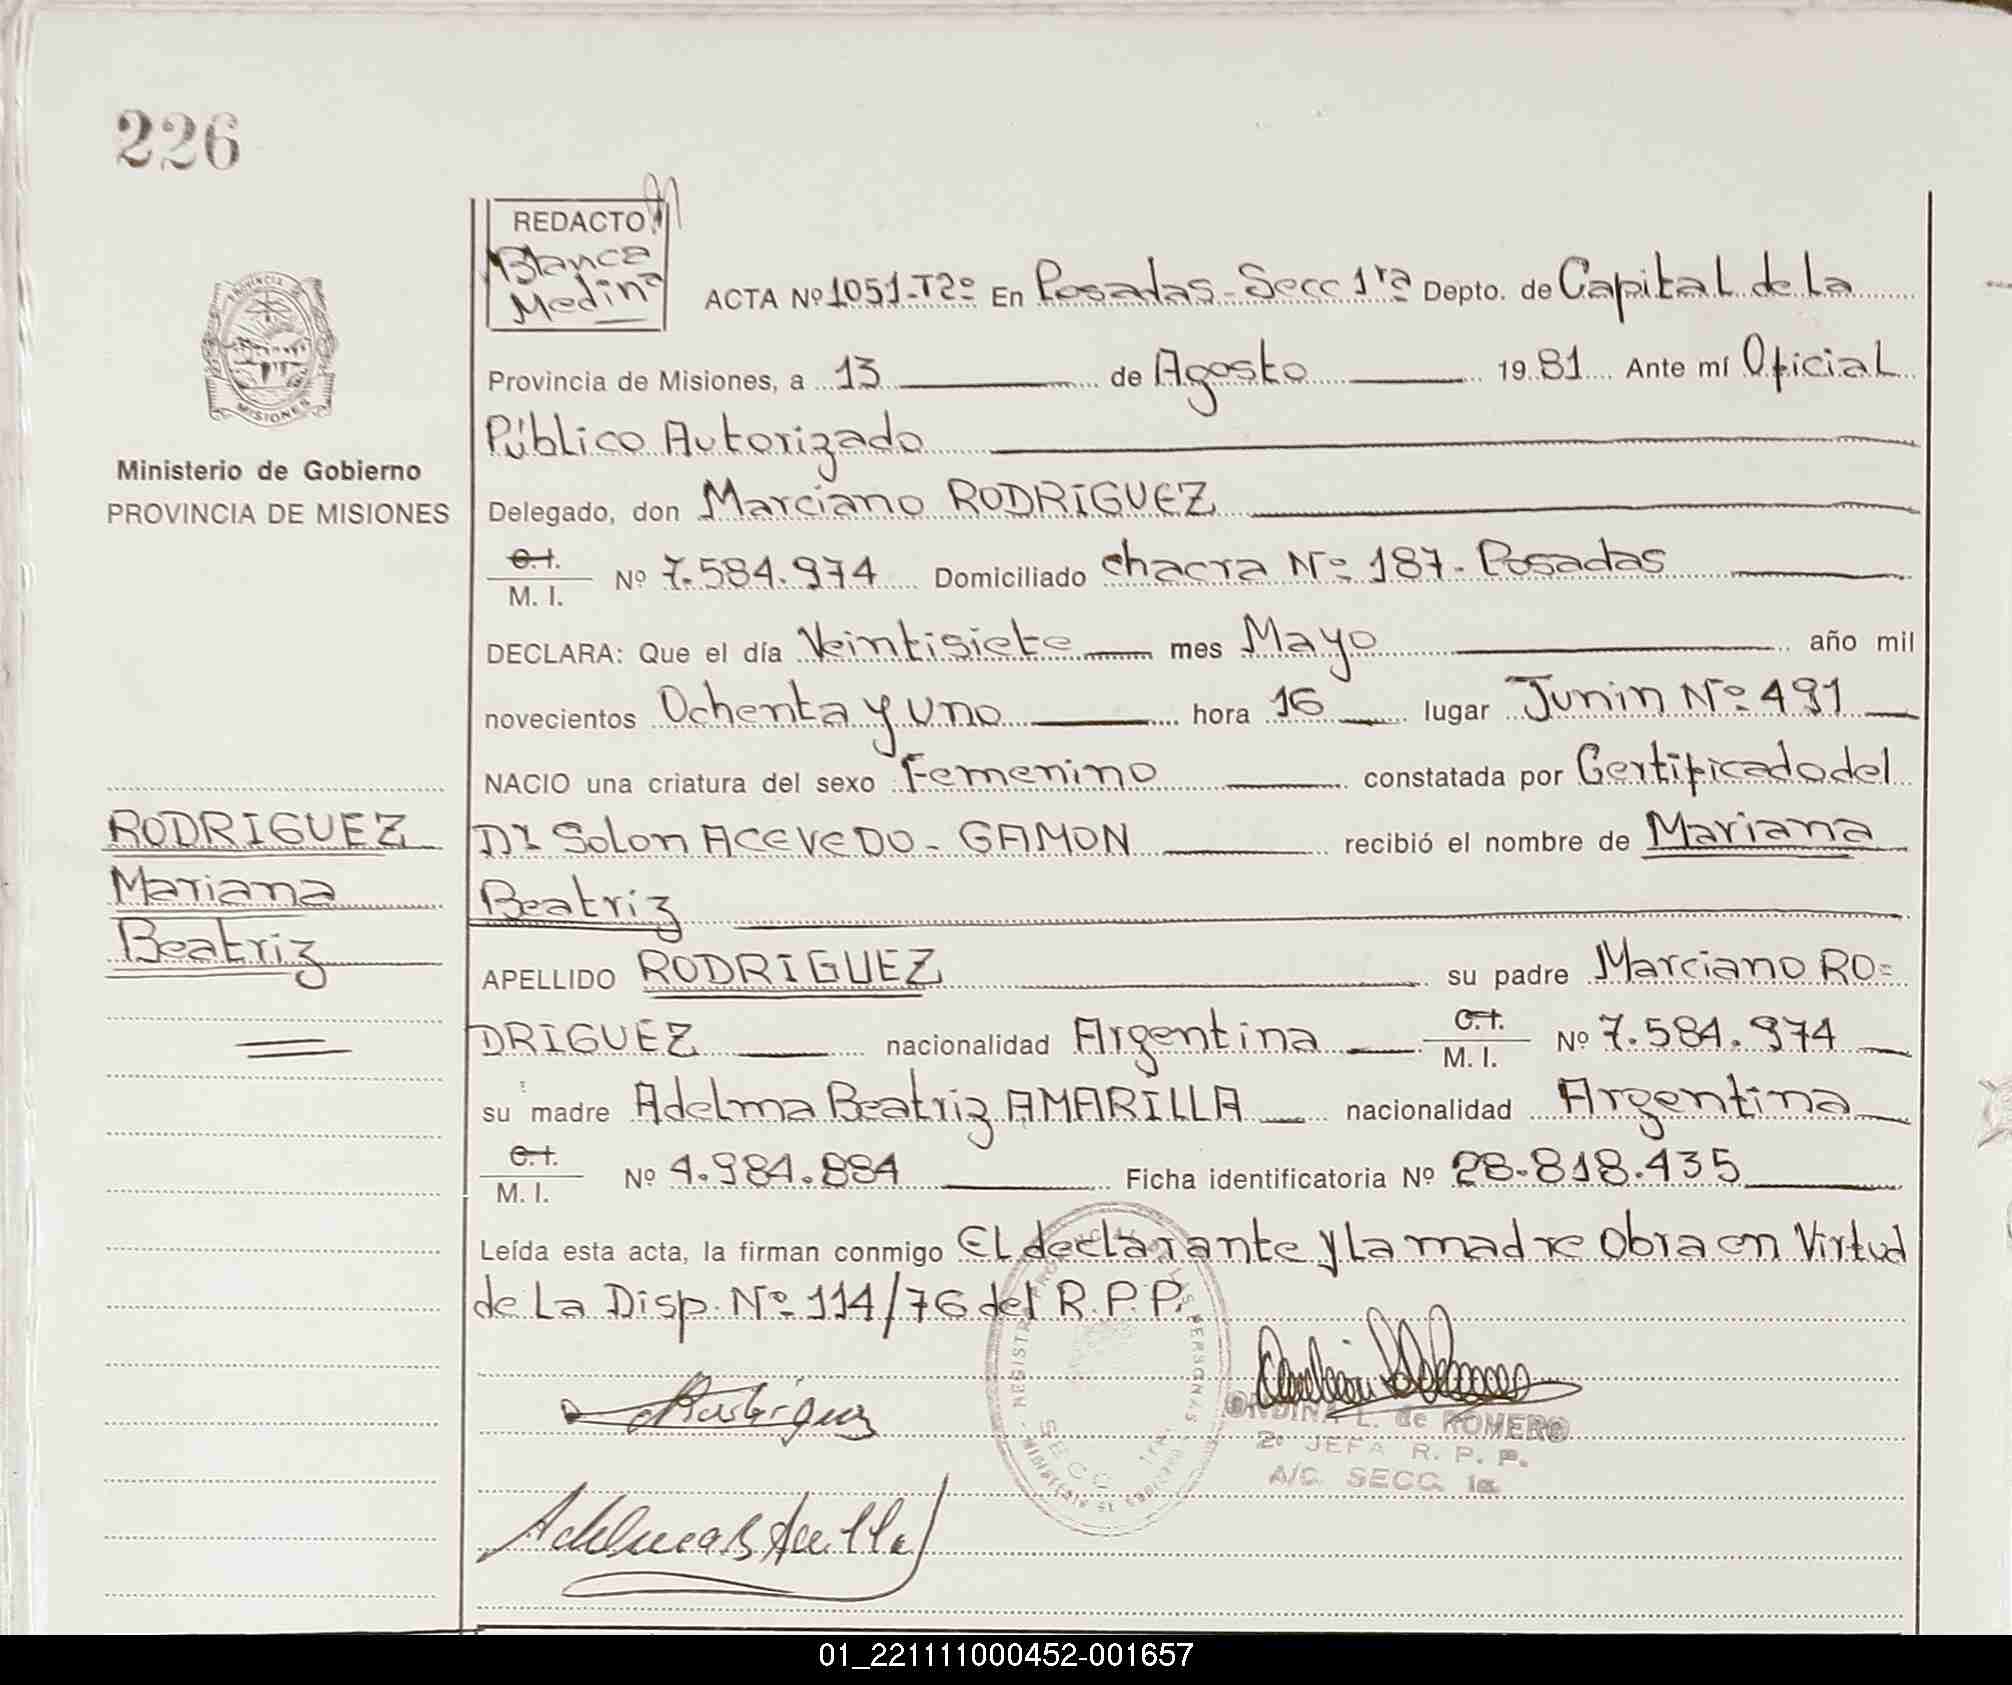 226
REDACTO
Blanca
Medina
ACTA Nº 1051-T2º En Posadas-Secc 1ra Depto. de Capital de la
Provincia de Misiones, a 13 de Agosto 1981 Ante mí Oficial
Público Autorizado
Delegado, don Marciano RODRIGUEZ
C.I.
M. I. Nº 7.584.974 Domiciliado chacra Nº 187- Posadas
DECLARA: Que el día Veintisiete mes Mayo año mil
novecientos Ochenta y uno hora 16 lugar Junin Nº 491
NACIO una criatura del sexo Femenino constatada por Certificado del
Dr Solon ACEVEDO - GAMON recibió el nombre de Mariana
Beatriz
APELLIDO RODRIGUEZ su padre Marciano RO=
DRIGUEZ nacionalidad Argentina C.I. M. I. Nº 7.584.974
su madre Adelma Beatriz AMARILLA nacionalidad Argentina
C.I.
M. I. Nº 4.984.884 Ficha identificatoria Nº 28.818.435
Leída esta acta, la firman conmigo El declarante y la madre Obra en Virtud
de la Disp. Nº 114/76 del R.P.P.
PROVINCIA
MISIONES
Ministerio de Gobierno
PROVINCIA DE MISIONES
RODRIGUEZ
Mariana
Beatriz
Rodriguez
ONDINA L. de ROMERO
2º JEFA R. P. P.
A/C. SECC. 1a.
REGISTRO PROVINCIAL PERSONAS
SECC 1ra.
01_221111000452-001657